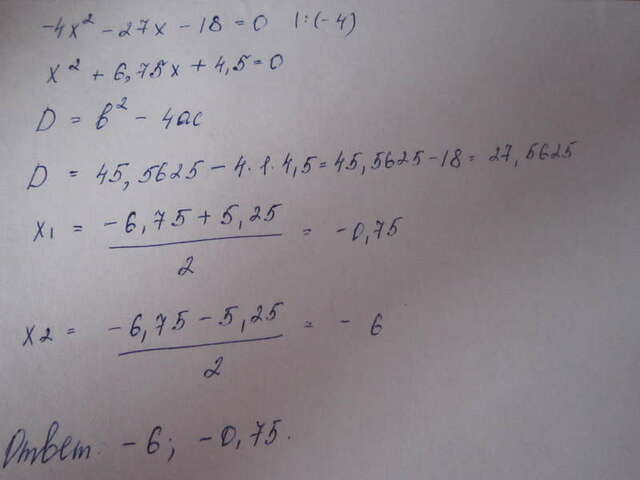 -4x² - 27x - 18 = 0 |:(-4)
x² + 6,75x + 4,5 = 0
D = b² - 4ac
D = 45,5625 - 4·1·4,5 = 45,5625 - 18 = 27,5625
x1 = (-6,75 + 5,25)/2 = -0,75
x2 = (-6,75 - 5,25)/2 = -6
Ответ: -6; -0,75.